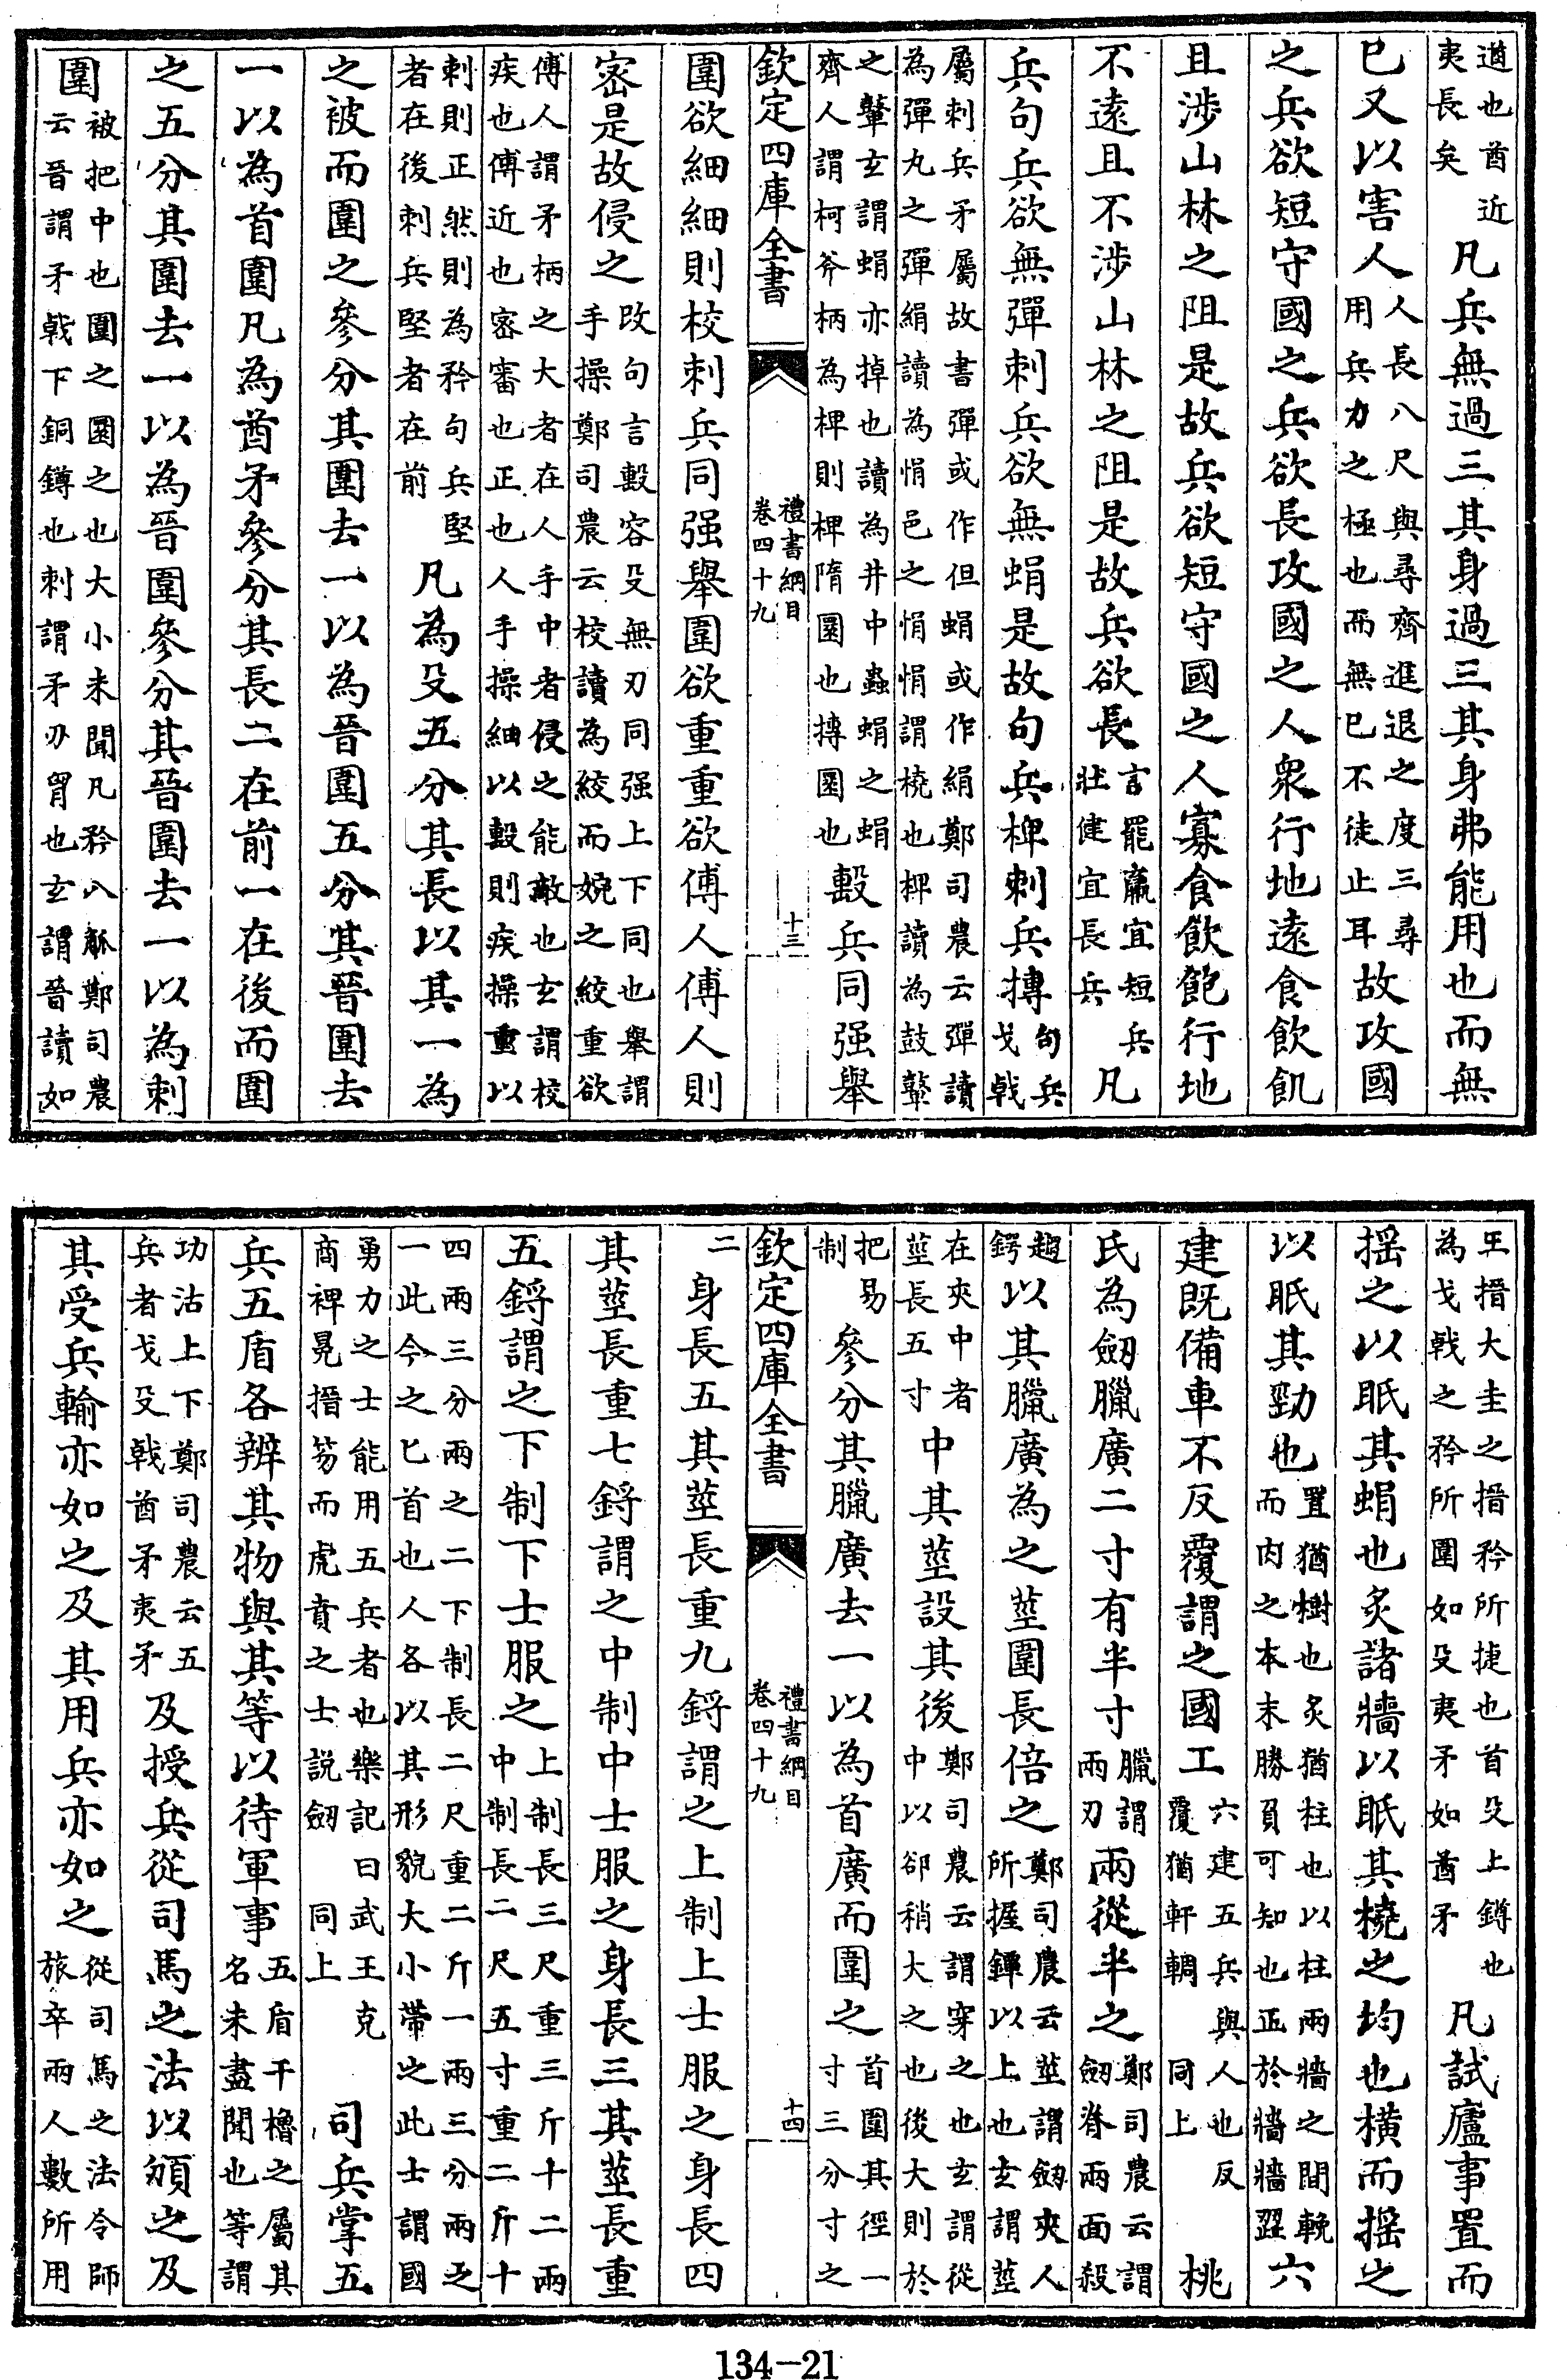 遒也酋近夷長矣凡兵無過三其身過三其身弗能用也而無
已又以害人人長八尺與尋齊進退之度三尋用兵力之極也而無已不徒止耳故攻國
之兵欲短守國之兵欲長攻國之人衆行地遠食飲飢
且涉山林之阻是故兵欲短守國之人寡食飲飽行地
不遠且不涉山林之阻是故兵欲長言罷羸宜短兵壯健宜長兵凡
兵句兵欲無彈刺兵欲無蜎是故句兵椑刺兵摶句兵戈戟
屬刺兵矛屬故書彈或作但蜎或作絹鄭司農云彈讀為彈丸之彈絹讀為悁邑之悁悁謂橈也椑讀為鼓鼙
之鼙玄謂蜎亦掉也讀為井中蟲蜎之蜎齊人謂柯斧柄為椑則椑隋圜也摶圜也毄兵同强舉
欽定四庫全書 禮書綱目 卷四十九 十三
圍欲細細則校刺兵同强舉圍欲重重欲傅人傅人則
宻是故侵之改句言毄容殳無刃同强上下同也舉謂手操鄭司農云校讀為絞而婉之絞重欲
傅人謂矛柄之大者在人手中者侵之能敵也玄謂校疾也傅近也宻審也正也人手操細以毄則疾操重以
刺則正然則為矜句兵堅者在後刺兵堅者在前凡為殳五分其長以其一為
之被而圍之參分其圍去一以為晉圍五分其晉圍去
一以為首圍凡為酋矛參分其長二在前一在後而圍
之五分其圍去一以為晉圍參分其晉圍去一以為刺
圍被把中也圍之圜之也大小未聞凡矜八觚鄭司農云晉謂矛戟下銅鐏也刺謂矛刃胷也玄謂晉讀如
王搢大圭之搢矜所捷也首殳上鐏也為戈戟之矜所圍如殳夷矛如酋矛凡試廬事置而
搖之以眡其蜎也炙諸牆以眡其橈之均也橫而搖之
以眡其勁也置猶樹也炙猶柱也以柱兩牆之間輓而内之本末勝負可知也正於牆牆歰六
建既備車不反覆謂之國工六建五兵與人也反覆猶軒輖同上桃
氏為劒臘廣二寸有半寸臘謂兩刃兩從半之鄭司農云謂劒脊兩面殺
趨鍔以其臘廣為之莖圍長倍之鄭司農云莖謂劒夾人所握鐔以上也玄謂莖
在夾中者莖長五寸中其莖設其後鄭司農云謂穿之也玄謂從中以卻稍大之也後大則於
把易制參分其臘廣去一以為首廣而圍之首圍其徑一寸三分寸之
欽定四庫全書 禮書綱目 卷四十九 十四
二身長五其莖長重九鋝謂之上制上士服之身長四
其莖長重七鋝謂之中制中士服之身長三其莖長重
五鋝謂之下制下士服之上制長三尺重三斤十二兩中制長二尺五寸重二斤十
四兩三分兩之二下制長二尺重二斤一兩三分兩之一此今之匕首也人各以其形貌大小帶之此士謂國
勇力之士能用五兵者也樂記曰武王克商裨冕搢笏而虎賁之士説劒同上司兵掌五
兵五盾各辨其物與其等以待軍事五盾干櫓之屬其名未盡聞也等謂
功沽上下鄭司農云五兵者戈殳戟酋矛夷矛及授兵從司馬之法以頒之及
其受兵輸亦如之及其用兵亦如之從司馬之法令師旅卒兩人數所用
134-21